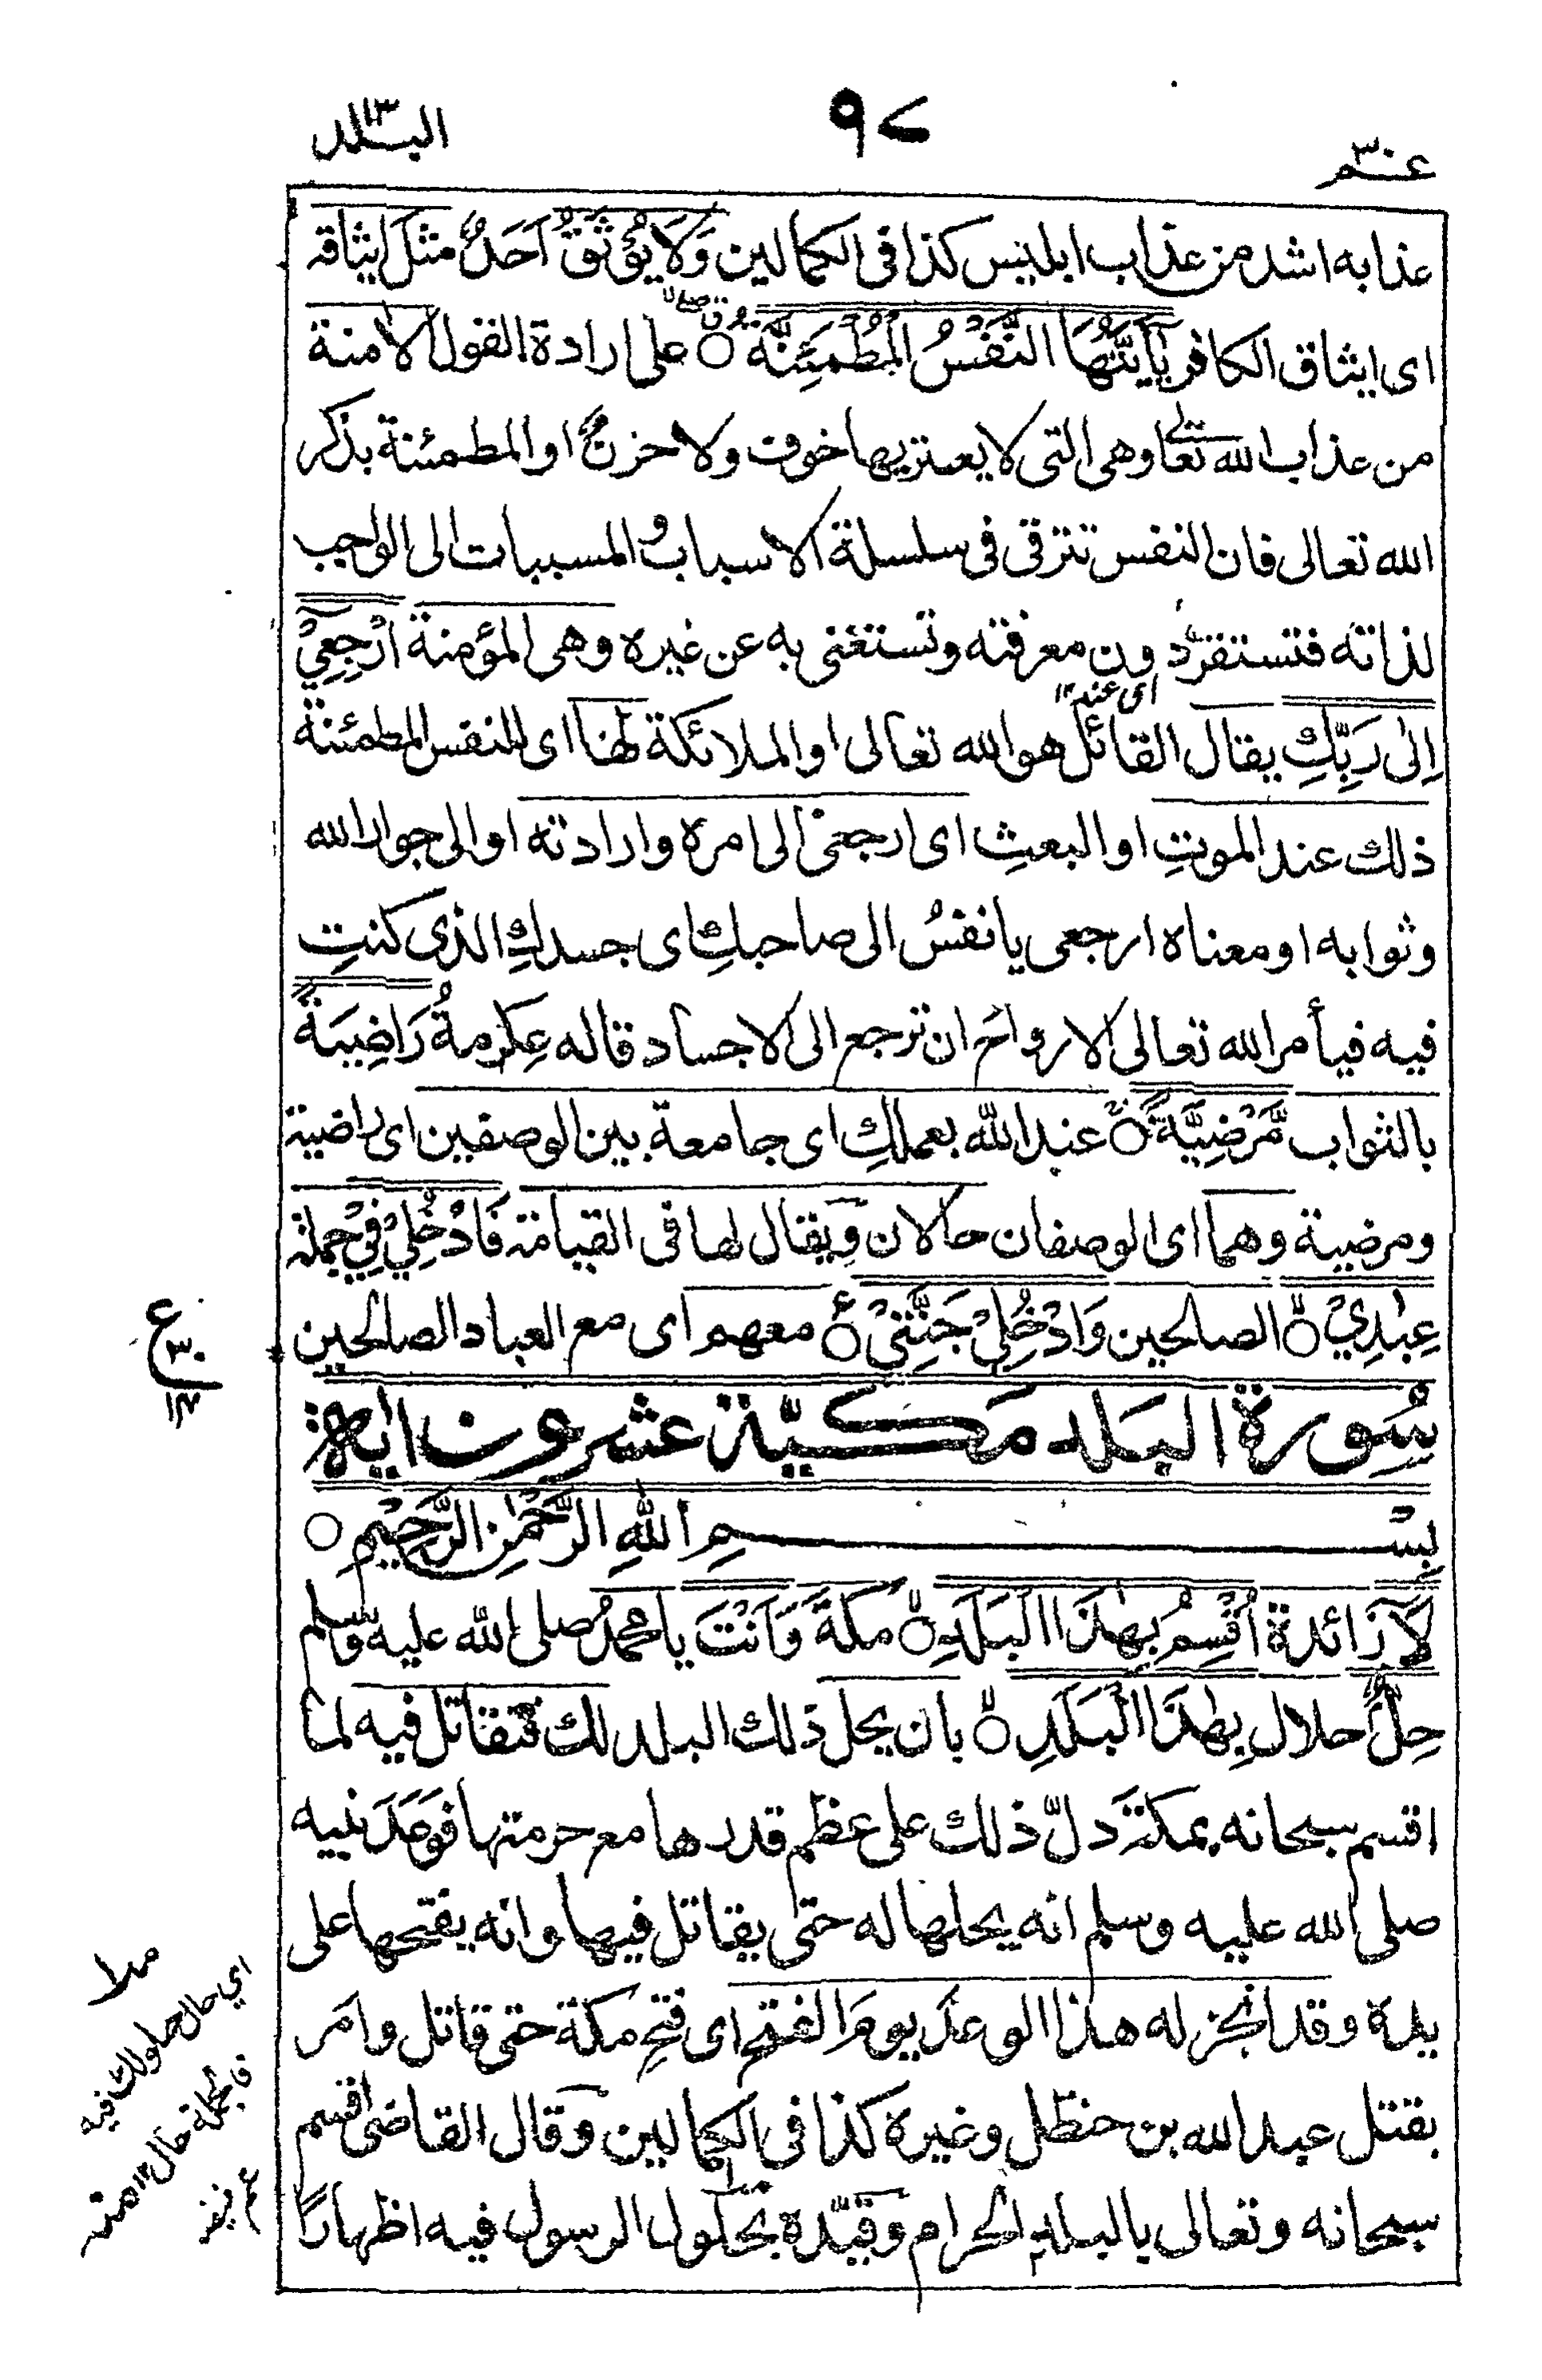 عم ٣٠
٩٧
البلد
عذابه اشد من عذاب ابليس كذا فى الكمالين وَلَا يُوْثَقُ اَحَدٌ مثل ايثاقه
اى ايثاق الكافر يٰٓاَيَّتُهَا النَّفْسُ الْمُطْمَئِنَّةُ ○ على ارادة القول الامنة
من عذاب الله تعالى وهى التى لا يعتريها خوف ولا حزن او المطمئنة بذكر
الله تعالى فان النفس تترقى فى سلسلة الاسباب والمسببات الى الواجب
لذاته فتستقر دون معرفته وتستغنى به عن غيره وهى المؤمنة ارْجِعِيْ
اى عند ١٢
اِلٰى رَبِّكِ يقال القائل هو الله تعالى او الملائكة لها اى للنفس المطمئنة
ذلك عند الموتِ او البعثِ اى ارجعى الى امره وارادته او الى جوار الله
وثوابه او معناه ارجعى يا نفسُ الى صاحبكِ اى جسدكِ الذى كنتِ
فيه فيأمر الله تعالى الارواحَ ان ترجع الى الاجساد قاله عِكرمةُ رَاضِيَةً
بالثواب مَّرْضِيَّةً ○ عند الله بعملكِ اى جامعة بين الوصفين اى راضية
ومرضية وهما اى الوصفان حالان ويقال لها فى القيامة فَادْخُلِيْ فِيْ جملة
عِبٰدِيْ ○ الصالحين وَادْخُلِيْ جَنَّتِيْ ○ معهم اى مع العباد الصالحين
ع ٣٠
سُورة البَلد مَكيّة عشرون اٰية
بِسْمِ اللهِ الرَّحْمٰنِ الرَّحِيْمِ ○
لَآ زائدة اُقْسِمُ بِهٰذَا الْبَلَدِ ○ مكةَ وَاَنْتَ يا محمدُ صلى الله عليه وسلم
حِلٌّ حلال بِهٰذَا الْبَلَدِ ○ بان يحل ذلك البلد لك فتقاتل فيه لما
اقسم سبحانه بمكة دلّ ذلك على عظم قدرها مع حرمتها فوعَدَ نبيه
صلى الله عليه وسلم انه يحلها له حتى يقاتل فيها وانه يفتحها على
يده وقد انجز له هذا الوعدَ يومَ الفتح اى فتح مكة حتى قاتل وامر
بقتل عبد الله بن حنظل وغيره كذا فى الكمالين وقال القاضى اقسم
سبحانه وتعالى بالبلد الحرام وقيّده بحُلول الرسول فيه اظهارًا
اي حال حلولك فيه
فالجملة حال ١٢ منه